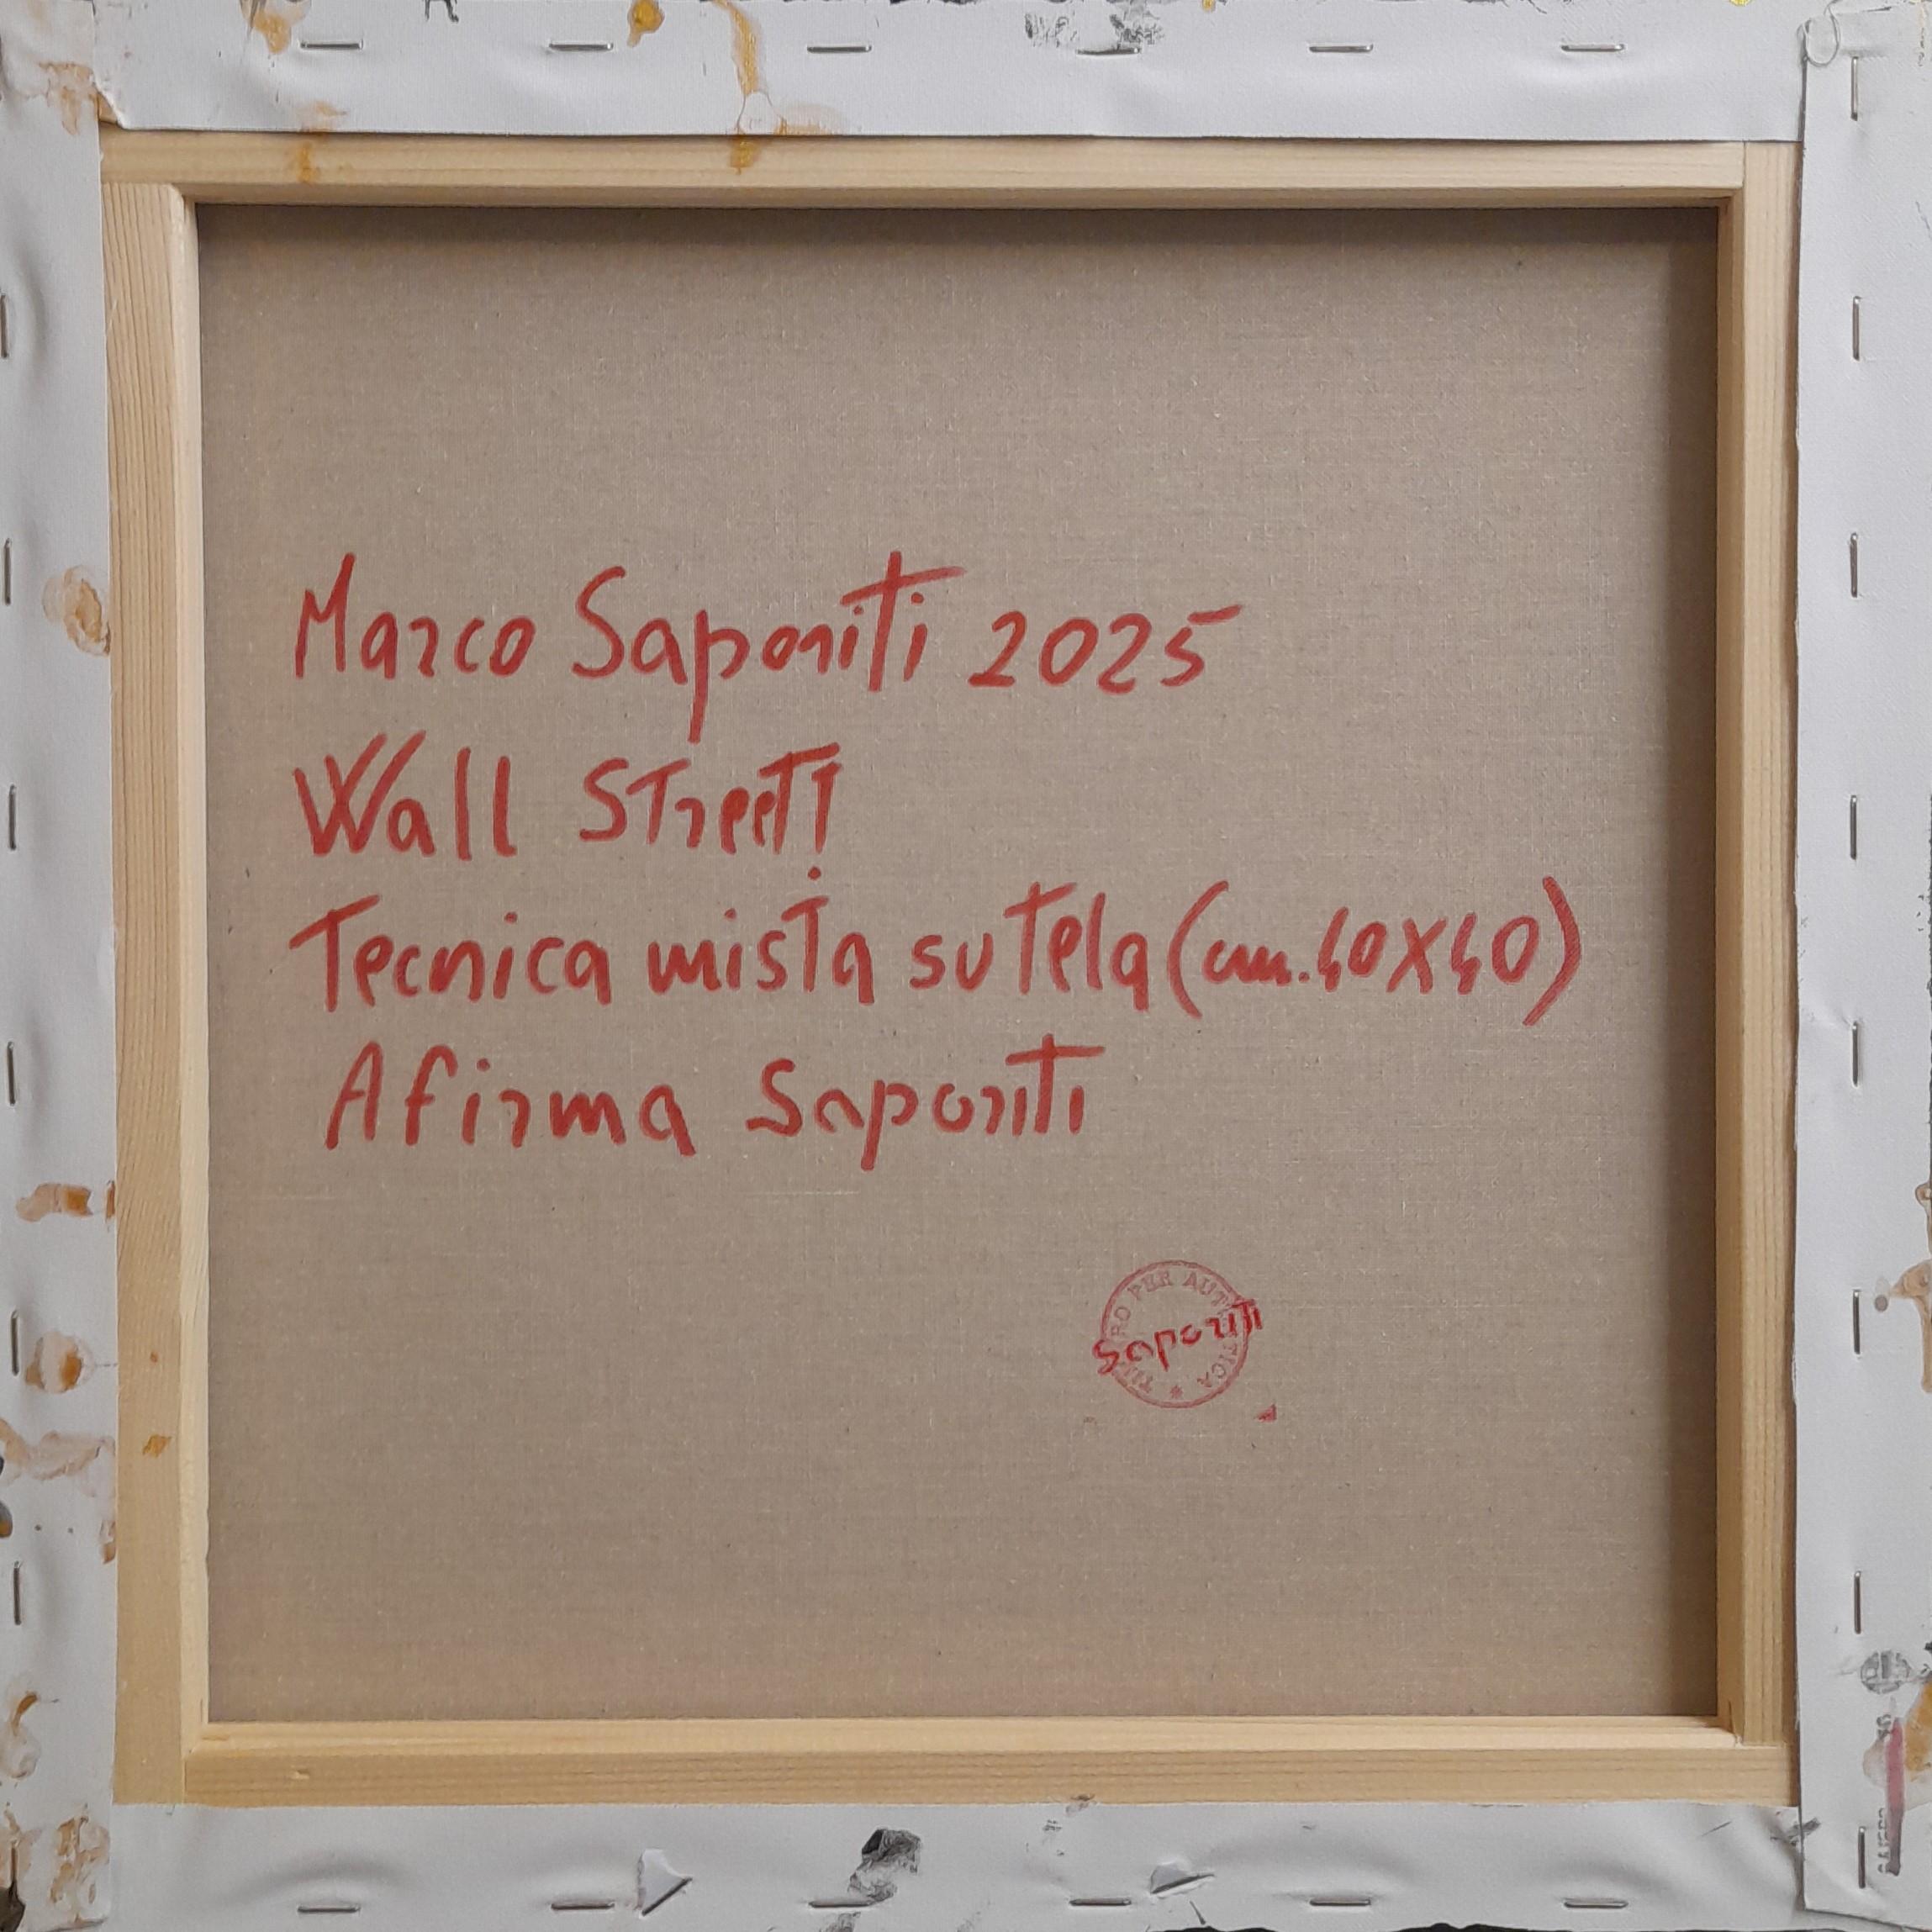 Marco Saporiti 2025
Wall Street!
Tecnica mista su tela (cm. 40X40)
A firma Saporiti
PER
Saporiti